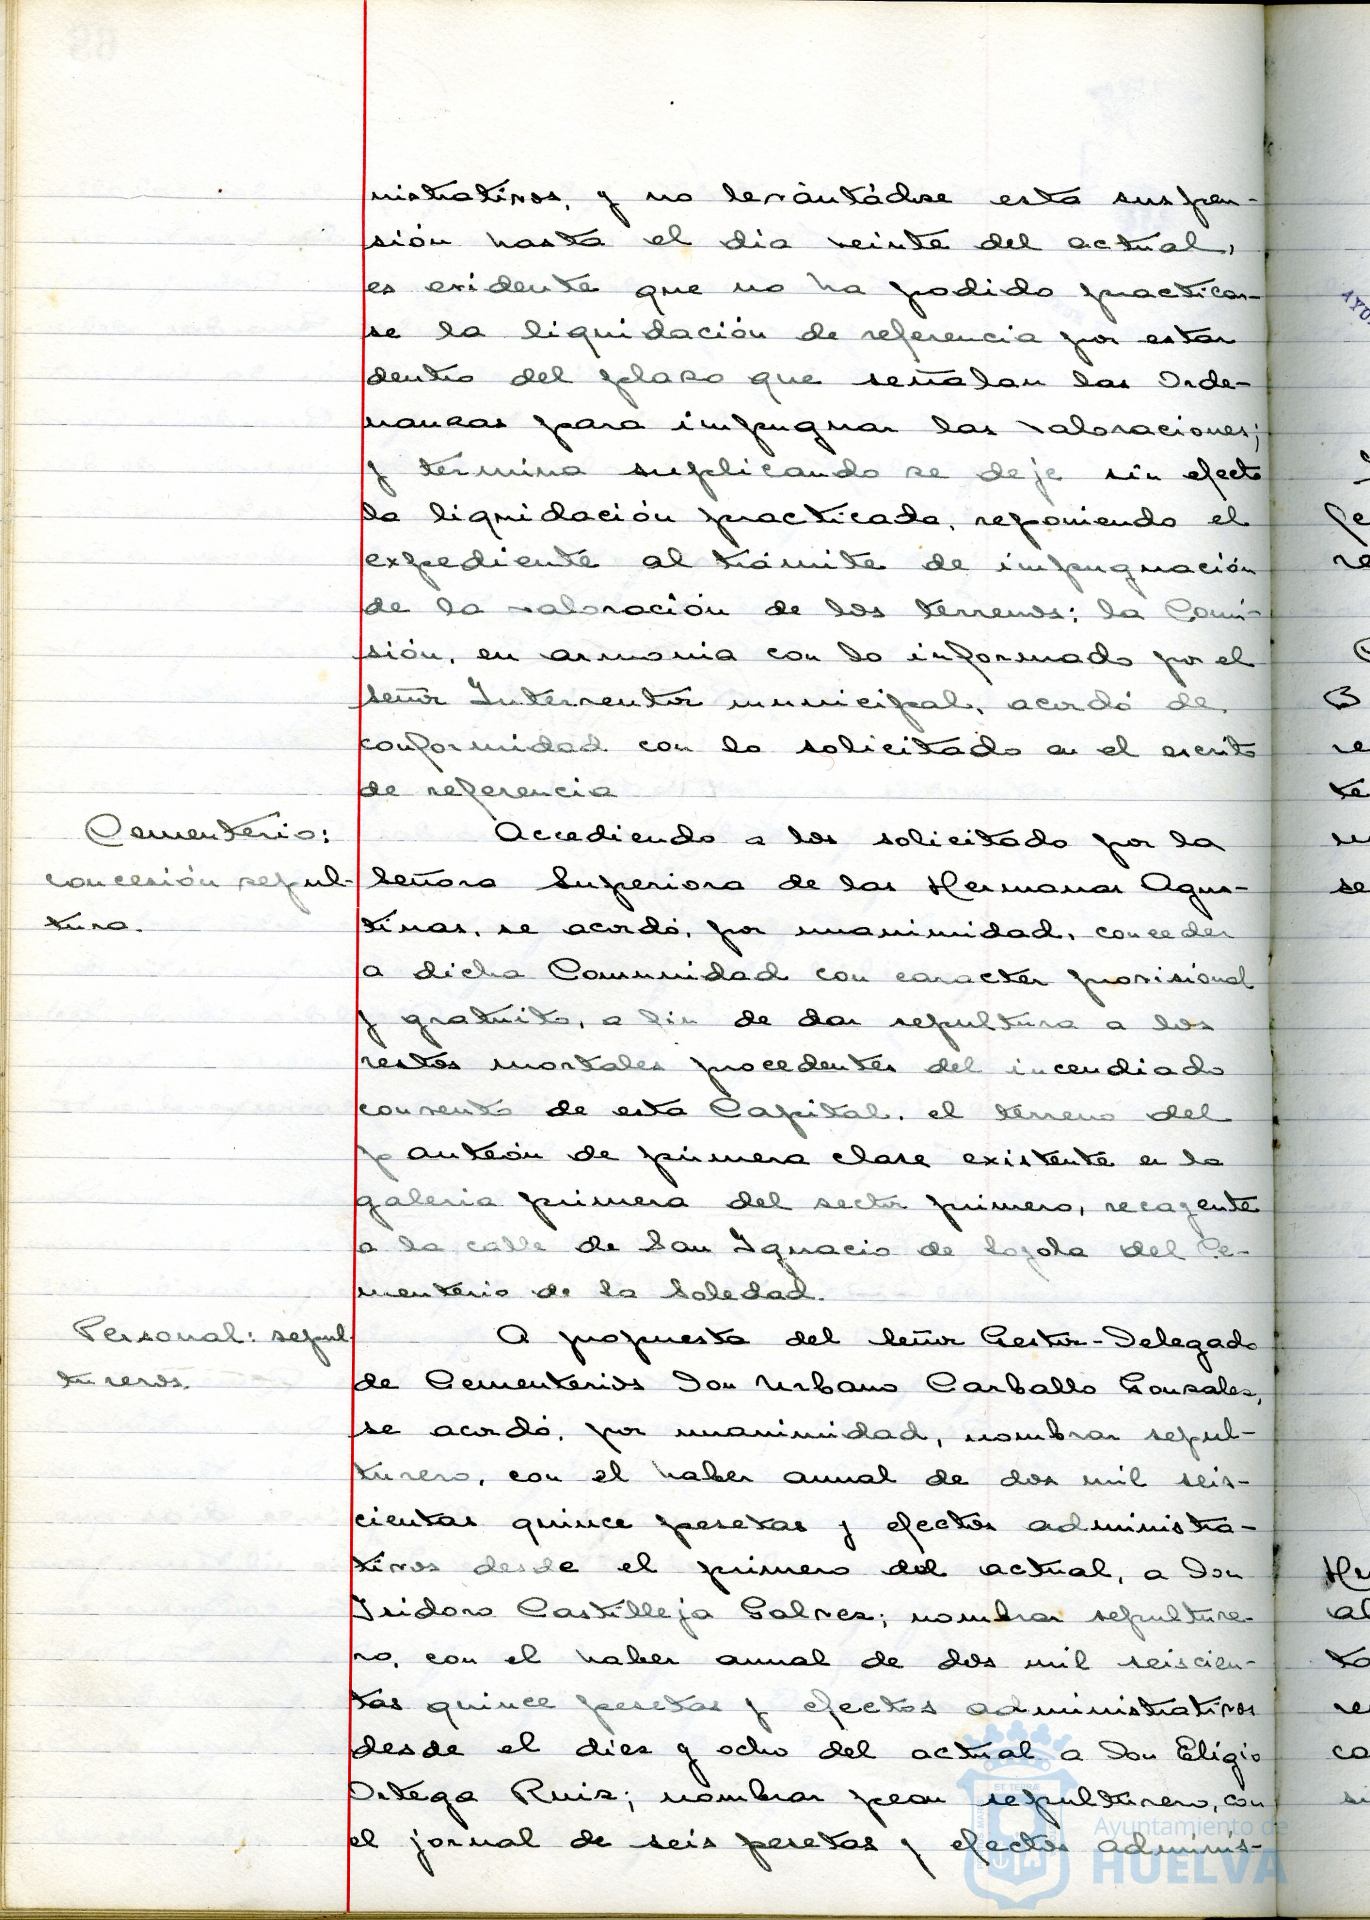 nistrativos, y no levantádose esta suspen-
sión hasta el dia veinte del actual,
es evidente que no ha podido practicar-
se la liquidación de referencia por estar
dentro del plazo que señalan las Orde-
nanzas para impugnar las valoraciones;
y termina suplicando se deje sin efecto
la liquidación practicada, reponiendo el
expediente al trámite de impugnación
de la valoración de los terrenos; la Comi-
sión, en armonia con lo informado por el
señor Interventor municipal, acordó de
conformidad con lo solicitado en el escrito
de referencia
Cementerio:
concesión sepul-
tura.
Accediendo a los solicitado por la
Señora Superiora de las Hermanas Agus-
tinas, se acordó, por unanimidad, conceder
a dicha Comunidad con caracter provisional
y gratuito, a fin de dar sepultura a los
restos mortales procedentes del incendiado
convento de esta Capital, el terreno del
panteón de primera clase existente en la
galeria primera del sector primero, recayente
a la calle de San Ignacio de Loyola del Ce-
menterio de la Soledad.
Personal: sepul-
tureros.
A propuesta del Señor Gestor-Delegado
de Cementerios Don Urbano Carballo Gonzales,
se acordó, por unanimidad, nombrar sepul-
turero, con el haber anual de dos mil seis-
cientas quince pesetas y efectos administra-
tivos desde el primero del actual, a Don
Isidoro Castilleja Galvez; nombrar sepulture-
ro, con el haber anual de dos mil seiscien-
tas quince pesetas y efectos administrativos
desde el diez y ocho del actual a Don Eligio
Ortega Ruiz; nombrar peon sepulturero, con
el jornal de seis pesetas y efectos adminis-
Ayuntamiento de
HUELVA